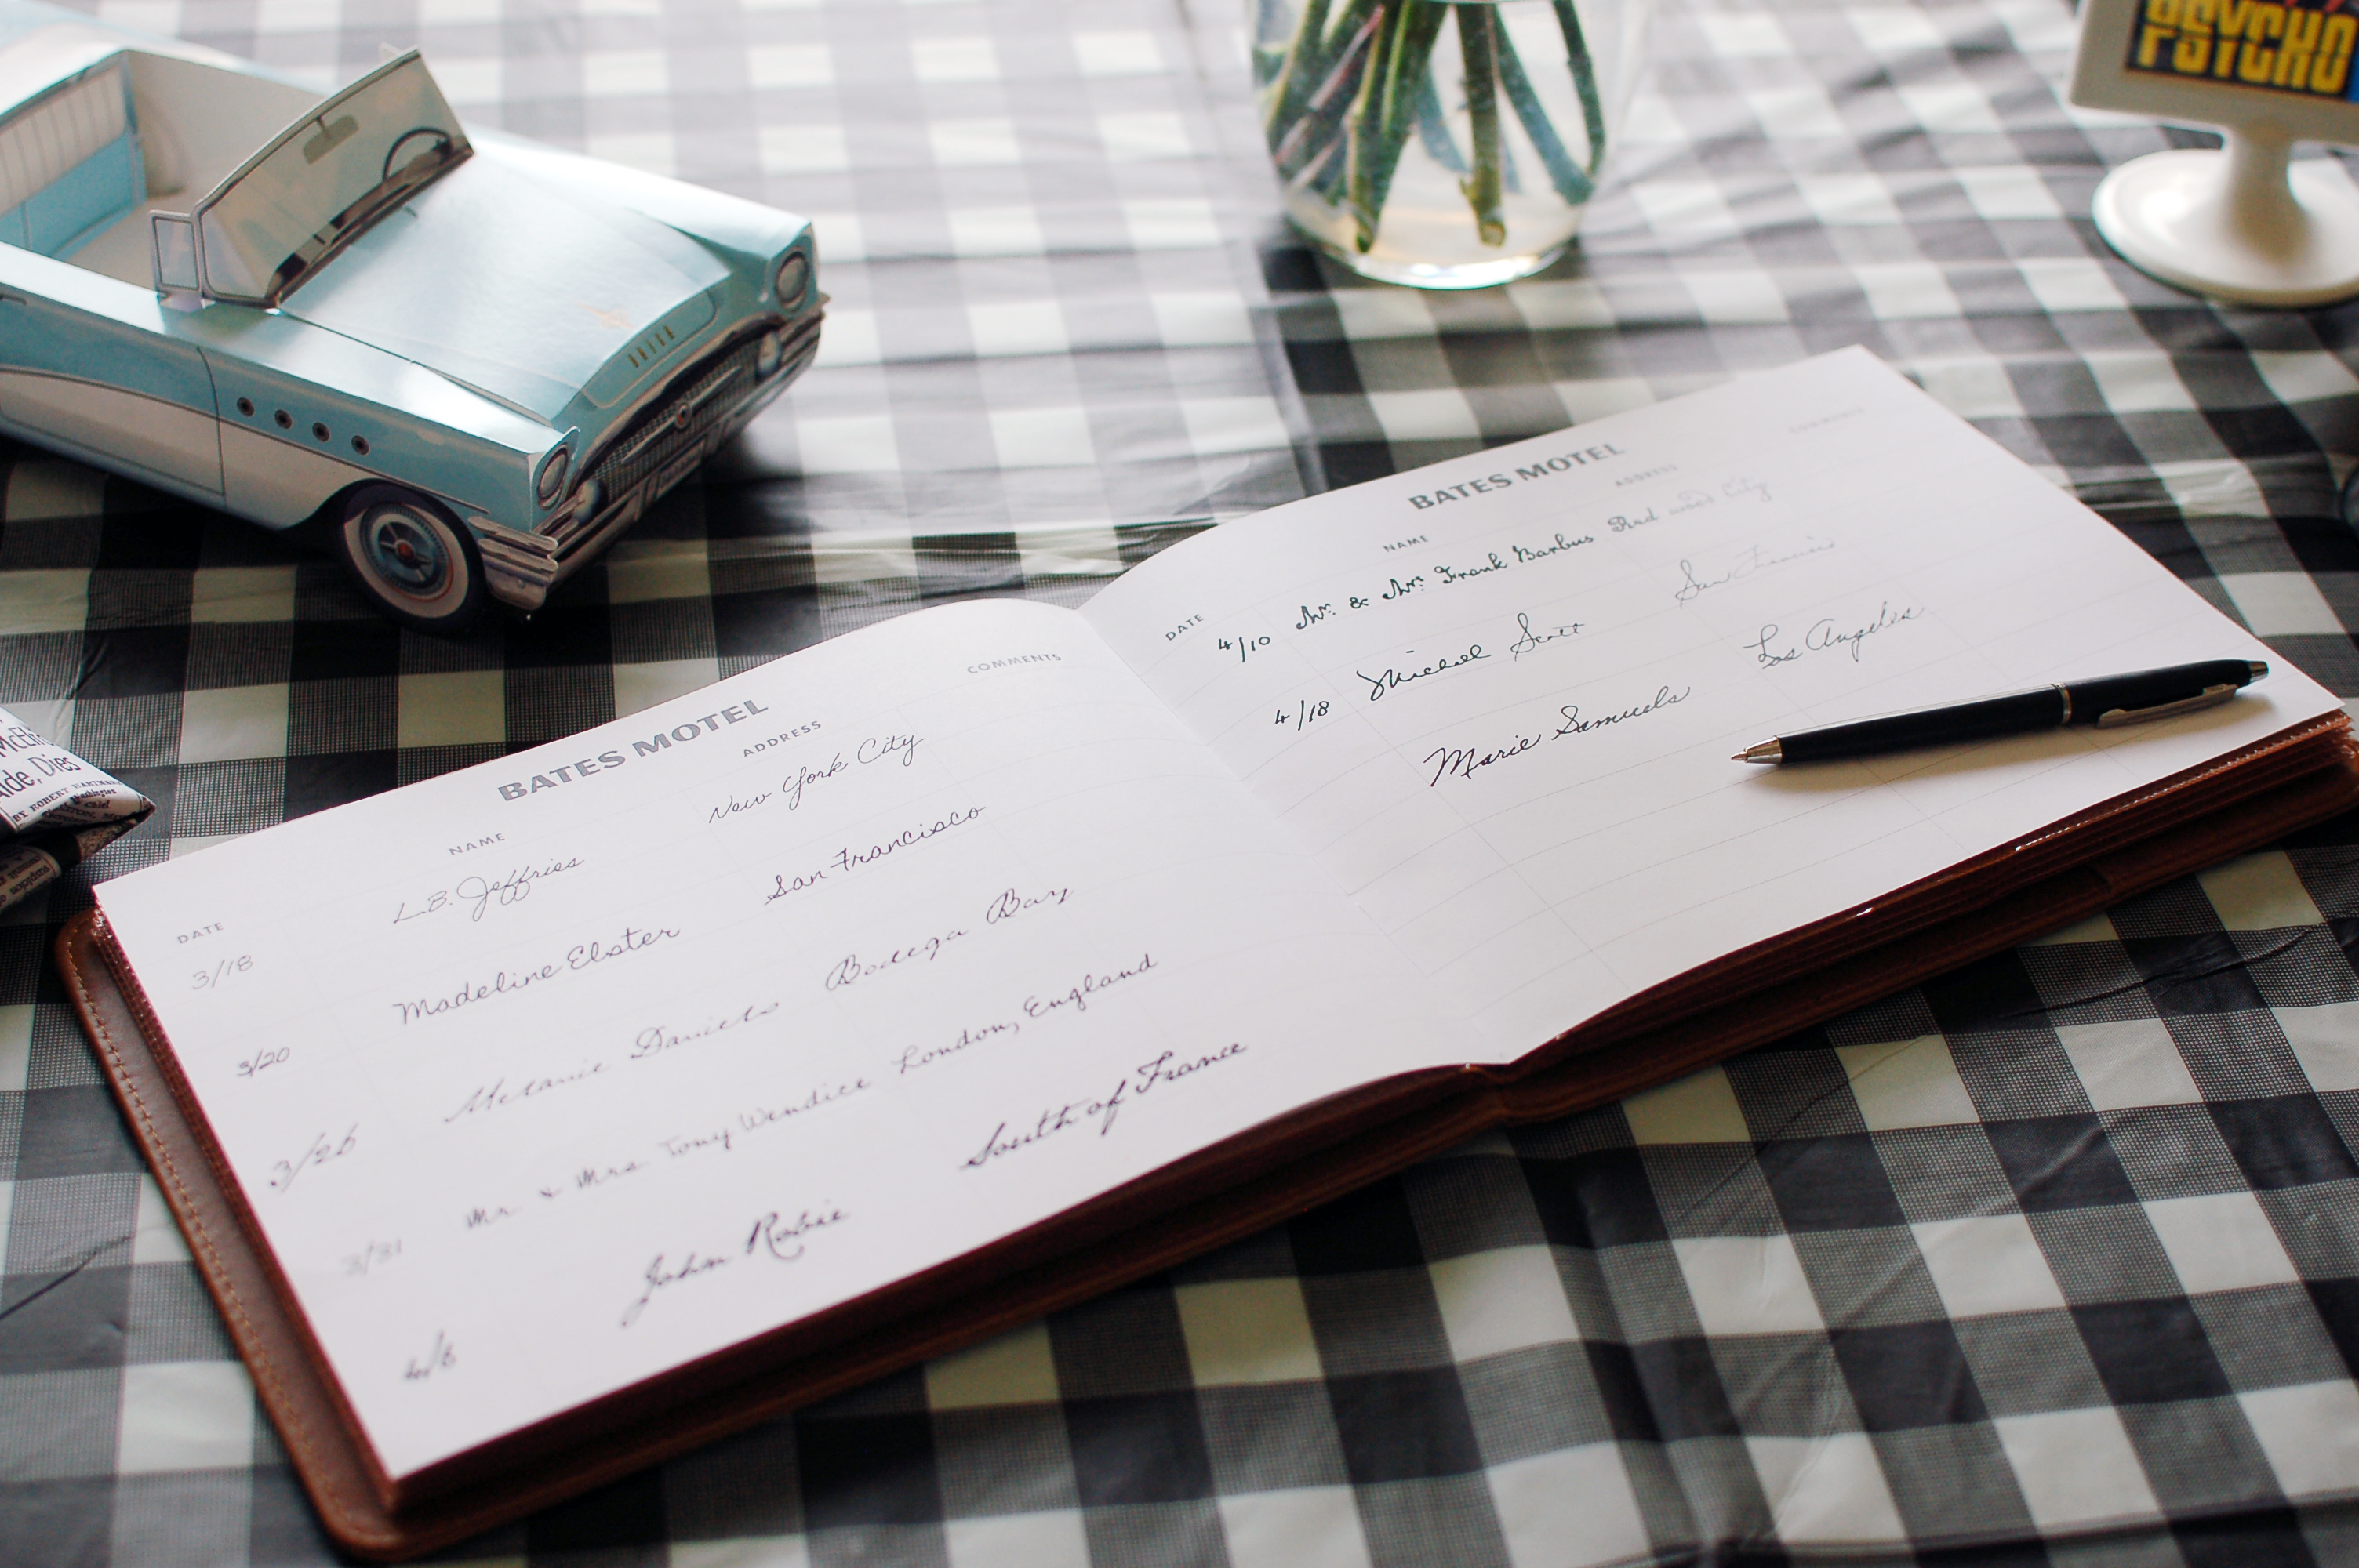 PSYCHO
McEl
ide, Dies
BY ROBERT HARTMAN
BATES MOTEL
DATE NAME ADDRESS COMMENTS
3/18 L.B. Jeffries New York City
3/20 Madeline Elster San Francisco
3/26 Melanie Daniels Bodega Bay
3/31 Mr. & Mrs Tony Wendice London, England
4/6 John Robie South of France
BATES MOTEL
DATE NAME ADDRESS COMMENTS
4/10 Mr. & Mrs. Frank Barbus Redwood City
4/18 Michael Scott San Francisco
Marie Samuels Los Angeles